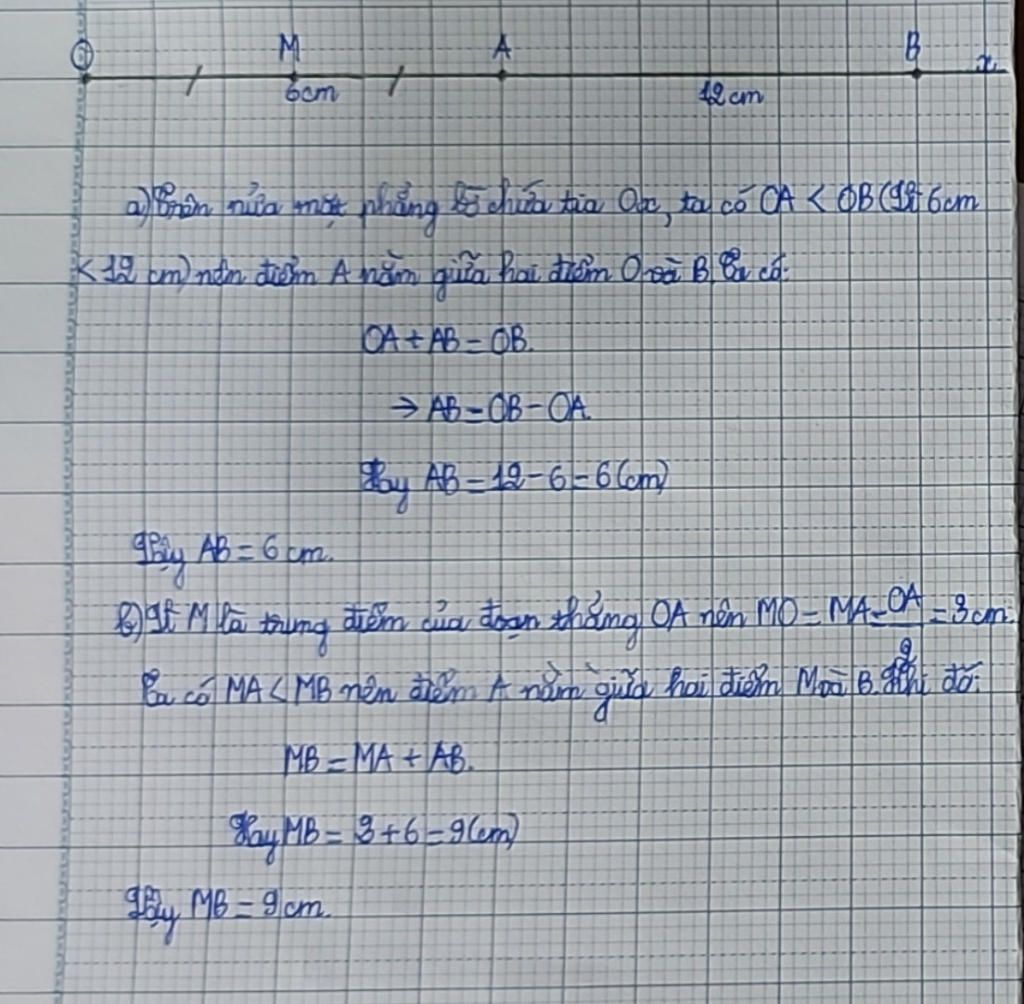 O M A B x
6cm 12cm
a) Trên nửa mặt phẳng bờ chứa tia Ox, ta có OA < OB (Vì 6cm
< 12 cm) nên điểm A nằm giữa hai điểm O và B. Ta có:
OA + AB = OB.
→ AB = OB - OA.
Hay AB = 12 - 6 = 6 (cm)
Vậy AB = 6 cm.
b) Vì M là trung điểm của đoạn thẳng OA nên MO = MA = OA/2 = 3cm.
Ta có MA < MB nên điểm A nằm giữa hai điểm M và B. Khi đó:
MB = MA + AB.
Hay MB = 3 + 6 = 9 (cm)
Vậy MB = 9 cm.